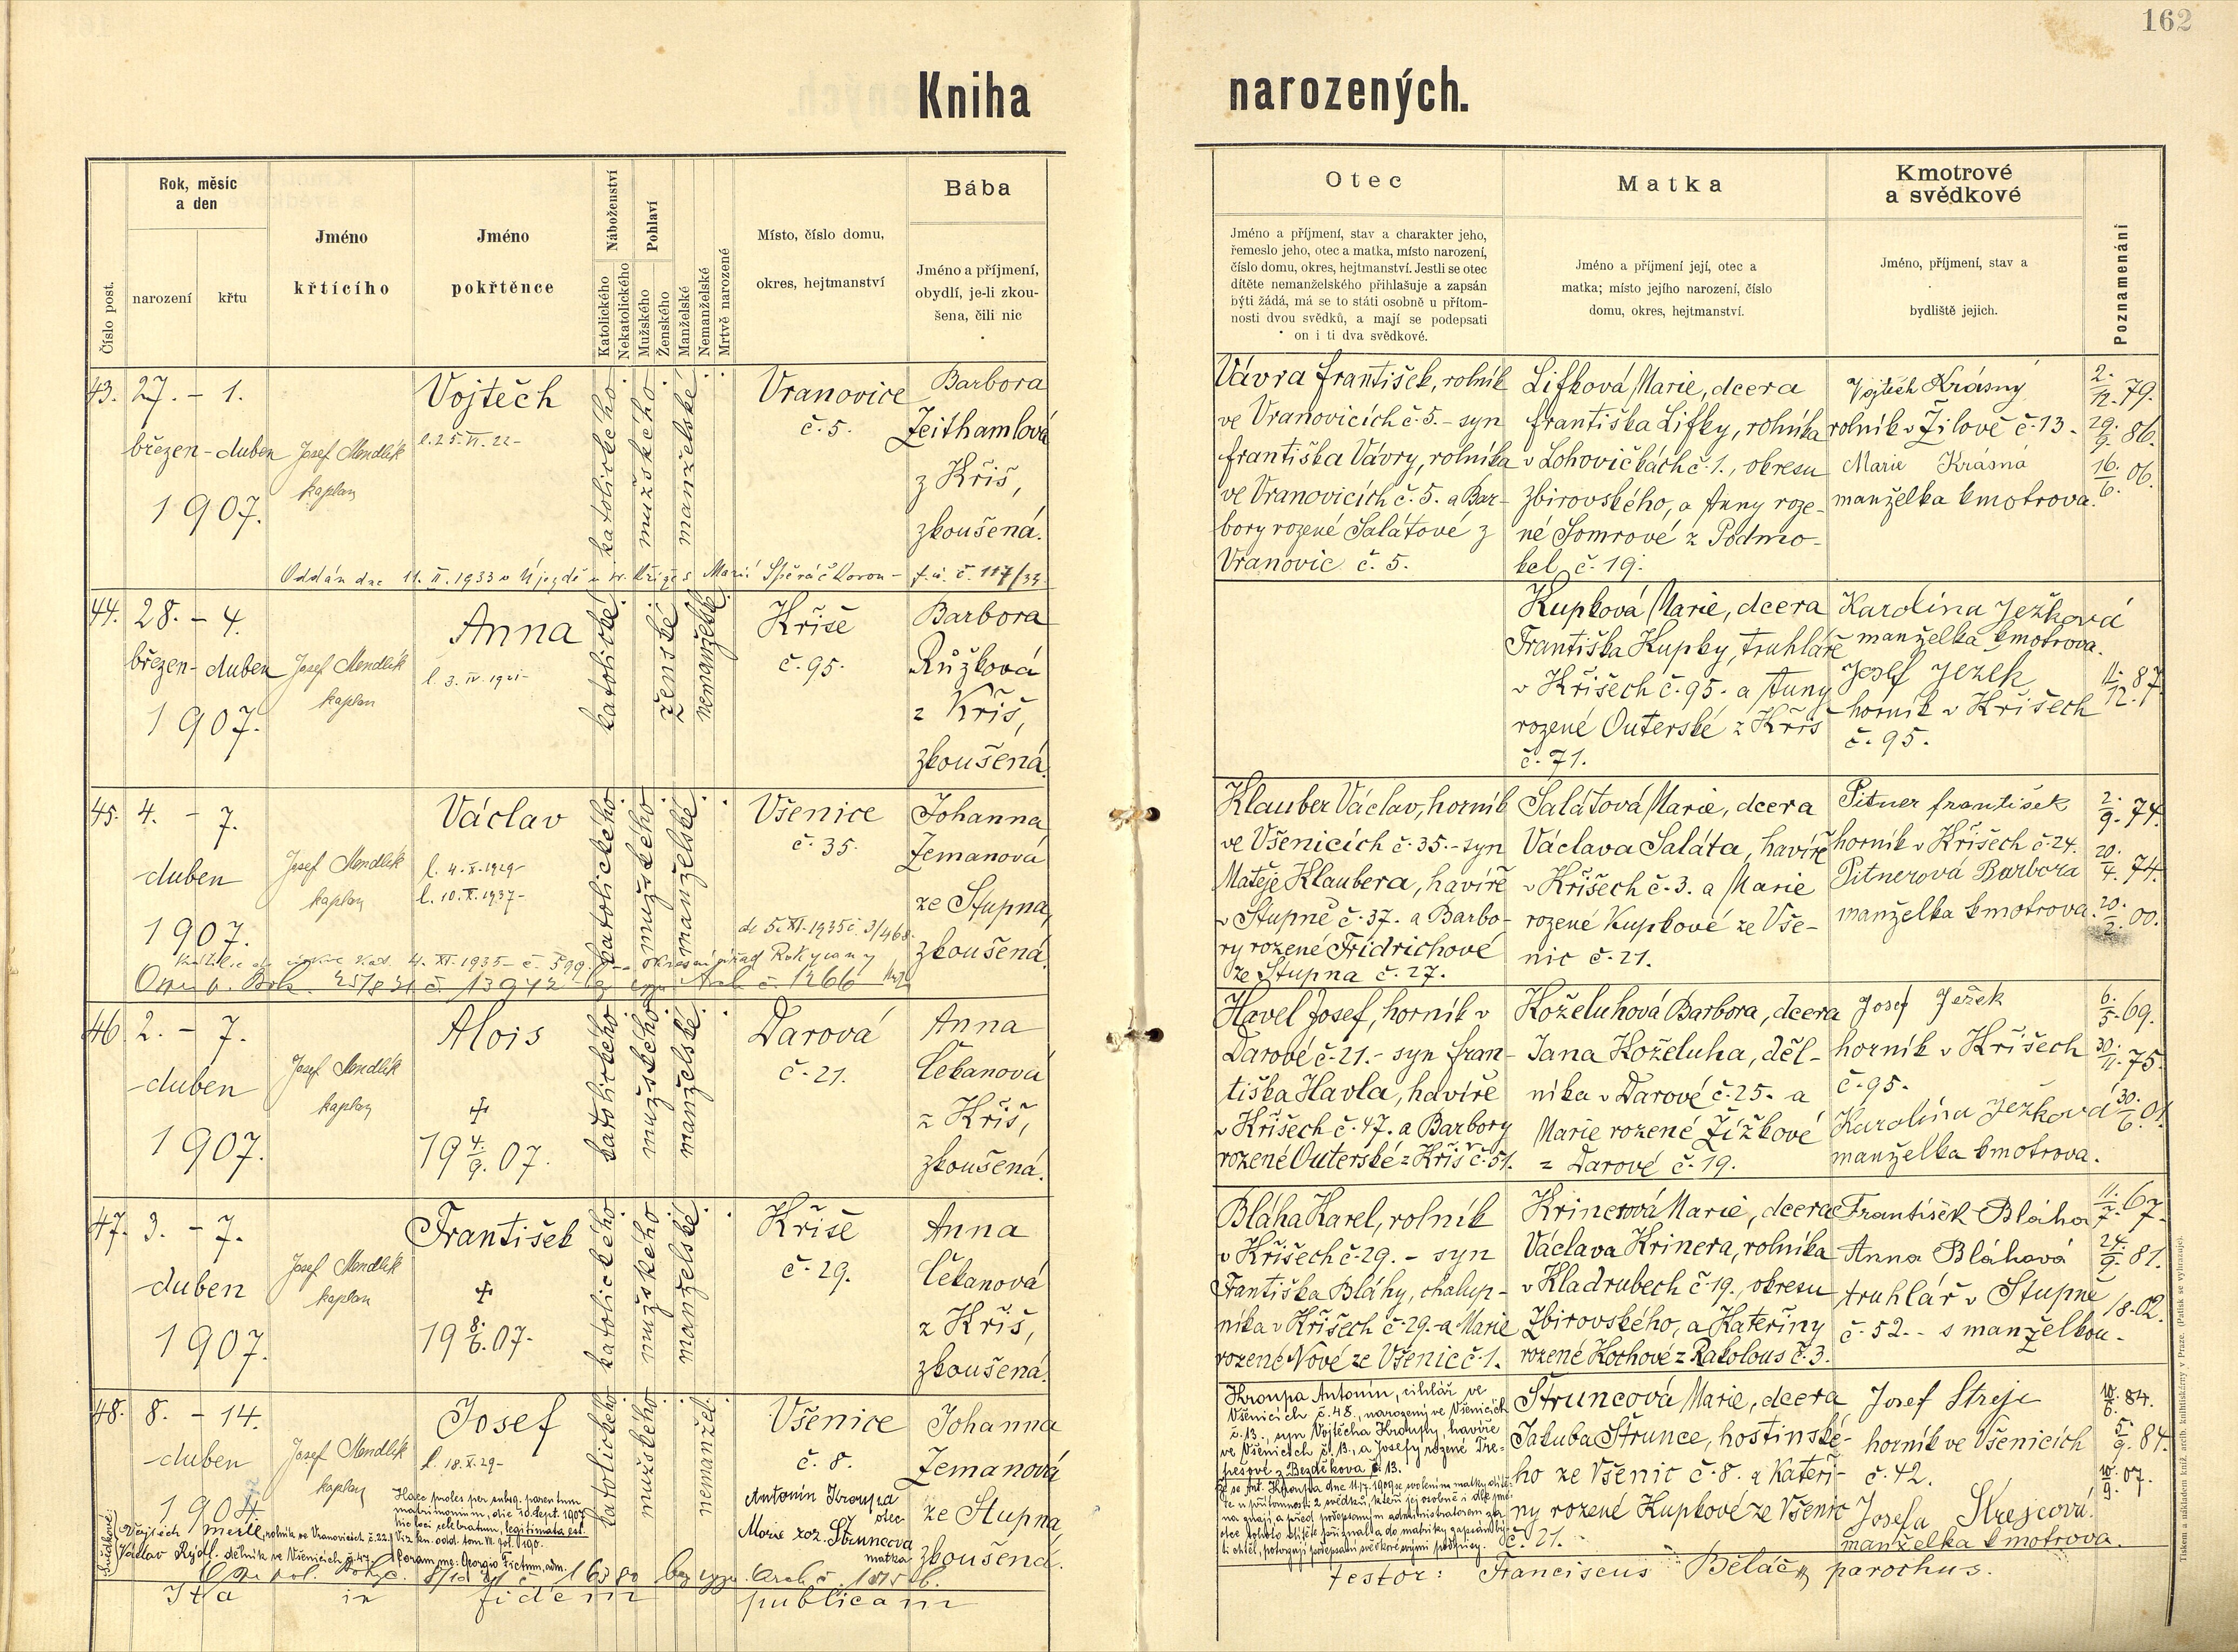 162
Kniha narozených.
Číslo post.
Rok, měsíc
a den
narození
křtu
Jméno
křtícího
Jméno
pokřtěnce
Náboženství
Katolického
Nekatolického
Pohlaví
Mužského
Ženského
Manželské
Nemanželské
Mrtvě narozené
Místo, číslo domu,
okres, hejtmanství
Bába
Jméno a příjmení,
obydlí, je-li zkou-
šena, čili nic
Otec
Jméno a příjmení, stav a charakter jeho,
řemeslo jeho, otec a matka, místo narození,
číslo domu, okres, hejtmanství. Jestli se otec
dítěte nemanželského přihlašuje a zapsán
býti žádá, má se to státi osobně u přítom-
nosti dvou svědků, a mají se podepsati
on i ti dva svědkové.
Matka
Jméno a příjmení její, otec a
matka; místo jejího narození, číslo
domu, okres, hejtmanství.
Kmotrové
a svědkové
Jméno, příjmení, stav a
bydliště jejich.
Poznamenání
43. 27. - 1.
březen - duben
1907.
Josef Mendlík
kaplan
Vojtěch
l. 25. VI. 22-
katolického
mužského
manželské
Vranovice
č. 5.
Barbora
Zeithamlová
z Kříš,
zkoušená.
Oddán dne 11. II. 1933 v Újezdě u sv. Kříže s Marií Spěráčkovou - č. 117/33
Vávra František, rolník
ve Vranovicích č. 5. - syn
Františka Vávry, rolníka
ve Vranovicích č. 5. a Bar-
bory rozené Salátové z
Vranovic č. 5.
Lifková Marie, dcera
Františka Lifky, rolníka
v Lohovičkách č. 1., okresu
zbirovského, a Anny roze-
né Somrové z Podmo-
kel č. 19.
Vojtěch Krásný
rolník v Žilově č. 13.
Marie Krásná
manželka kmotrova.
2./11. 79.
29./9. 86.
16./6. 06.
44. 28. - 4.
březen - duben
1907.
Josef Mendlík
kaplan
Anna
l. 3. IV. 1921-
katolické
ženské
nemanželské
Kříše
č. 95.
Barbora
Růžková
z Kříš,
zkoušená.
Kupková Marie, dcera
Františka Kupky, truhláře
v Kříšech č. 95. a Anny
rozené Outerské z Kříš
č. 71.
Karolína Ježková
manželka kmotrova.
Josef Ježek
horník v Kříšech
č. 95.
11./12. 87.
45. 4. - 7.
duben
1907.
Josef Mendlík
kaplan
Václav
l. 4. X. 1929-
l. 10. X. 1937-
katolického
mužského
manželské
Všenice
č. 35.
Johanna
Zemanová
ze Stupna,
zkoušená.
de 5. XI. 1935 č. 3/468.
4. XI. 1935 - č. 599 okresní úřad Rokycany
č. 13942 č. 1266
Klauber Václav, horník
ve Všenicích č. 35. - syn
Matěje Klaubera, havíře
v Stupně č. 37. a Barbo-
ry rozené Fridrichové
ze Stupna č. 27.
Salátová Marie, dcera
Václava Saláta, havíře
v Kříšech č. 3. a Marie
rozené Kupkové ze Vše-
nic č. 21.
Pitner František
horník v Kříšech č. 24.
Pitnerová Barbora
manželka kmotrova.
2./9. 74.
20./4. 74.
20./2. 00.
46. 2. - 7.
duben
1907.
Josef Mendlík
kaplan
Alois
19 4./9. 07.
katolického
mužského
manželské
Darová
č. 21.
Anna
Čekanová
z Kříš,
zkoušená.
Havel Josef, horník v
Darové č. 21. - syn Fran-
tiška Havla, havíře
v Kříšech č. 47. a Barbory
rozené Outerské z Kříš č. 51.
Koželuhová Barbora, dcera
Jana Koželuha, děl-
níka v Darové č. 25. a
Marie rozené Žížkové
z Darové č. 19.
Josef Ježek
horník v Kříšech
č. 95.
Karolína Ježková
manželka kmotrova.
6./5. 69.
30./11. 75.
30./6. 01.
47. 3. - 7.
duben
1907.
Josef Mendlík
kaplan
František
19 8./6. 07.
katolického
mužského
manželské
Kříše
č. 29.
Anna
Čekanová
z Kříš,
zkoušená.
Bláha Karel, rolník
v Kříšech č. 29. - syn
Františka Bláhy, chalup-
níka v Kříšech č. 29. a Marie
rozené Nové ze Všenic č. 1.
Krinerová Marie, dcera
Václava Krinera, rolníka
v Kladrubech č. 19., okresu
Zbirovského, a Kateřiny
rozené Kochové z Rakolous č. 3.
František Bláha
Anna Bláhová
truhlář v Stupně
č. 52. - s manželkou.
11./7. 67.
24./9. 81.
18. 02.
48. 8. - 14.
duben
1907
Josef Mendlík
kaplan
Josef
l. 18. X. 29-
katolického
mužského
nemanžel.
Všenice
č. 8.
Antonín Kroupa
otec
Marie roz. Štruncová
matka
Johanna
Zemanová
ze Stupna,
zkoušená.
Haec proles per subsq. parentum
matrimonium, die 30. Sept. 1907
hic loci celebratum, legitimata est.
Viz kn. odd. tom. VI. fol. 190.
Coram me: Georgio Fictum, adm.
Svědkové:
Vojtěch Meisl, rolník ve Vranovicích č. 22.
Václav Rydl, dělník ve Všenicích č. 47.
Kroupa Antonín, cihlář ve
Všenicích č. 48., narozený ve Všenicích
č. 13., syn Vojtěcha Kroupy, havíře
ve Všenicích č. 13., a Josefy rozené Tre-
pešové z Bezděkova č. 13.
Štruncová Marie, dcera
Jakuba Štrunce, hostinské-
ho ze Všenic č. 8. a Kateři-
ny rozené Kupkové ze Všenic
č. 21.
Josef Strejc
horník ve Všenicích
č. 42.
Josefa Strejcová
manželka kmotrova.
10./6. 84.
5./9. 84.
10./9. 07.
Ita in fidem publicam
testor: Franciscus Běláč, parochus.
Tiskem a nákladem kníž. arcib. knihtiskárny v Praze. (Patisk se vyhrazuje).